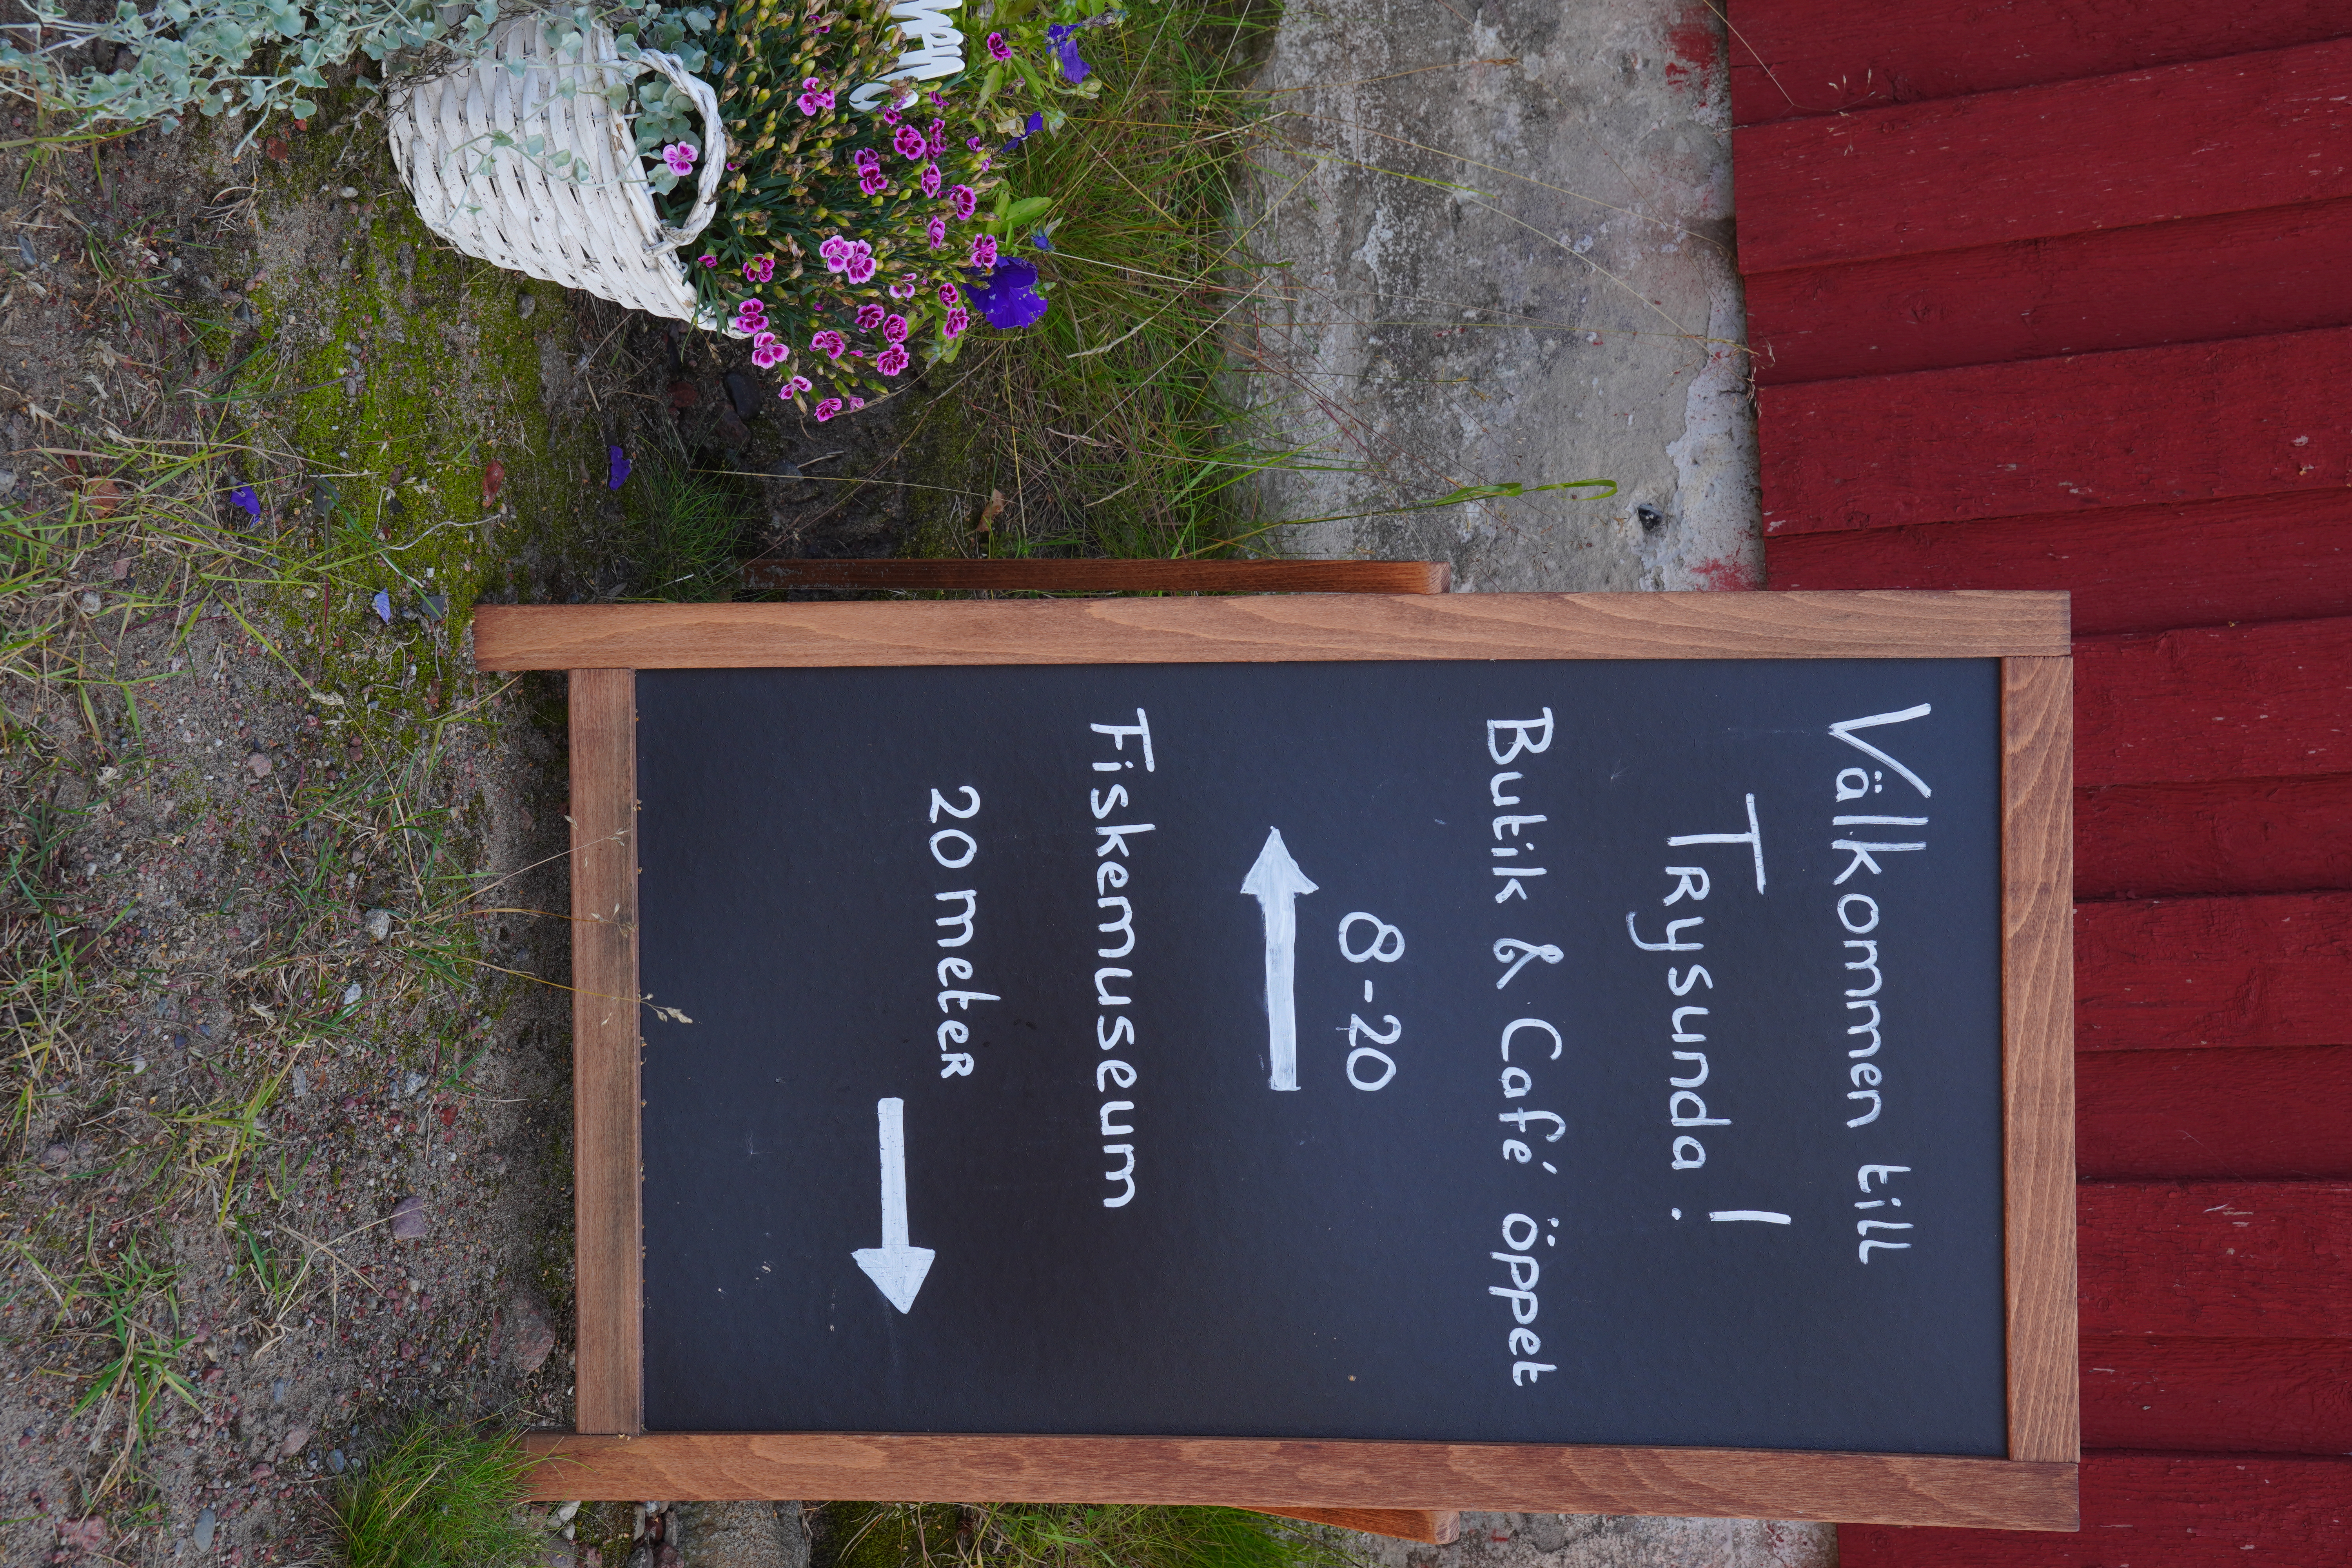 Välkommen till
Trysunda!
Butik & Café öppet
8-20
Fiskemuseum
20 meter